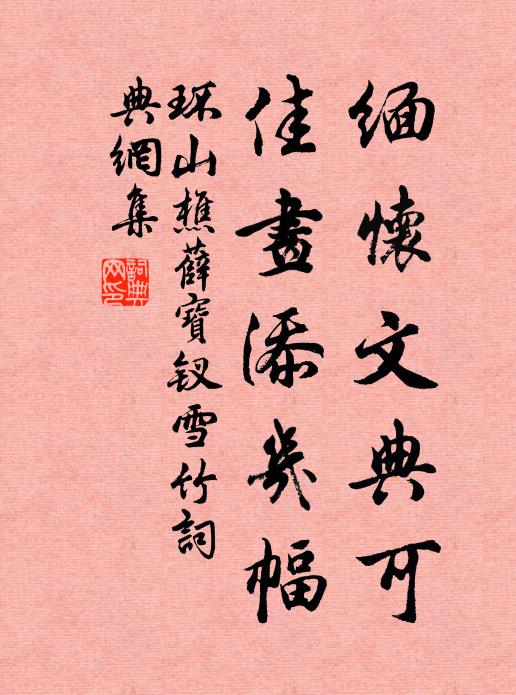 缅懷文典可
佳畫添幾幅
环山樵薛寶釵雪竹詞
典網集
詞典
网印